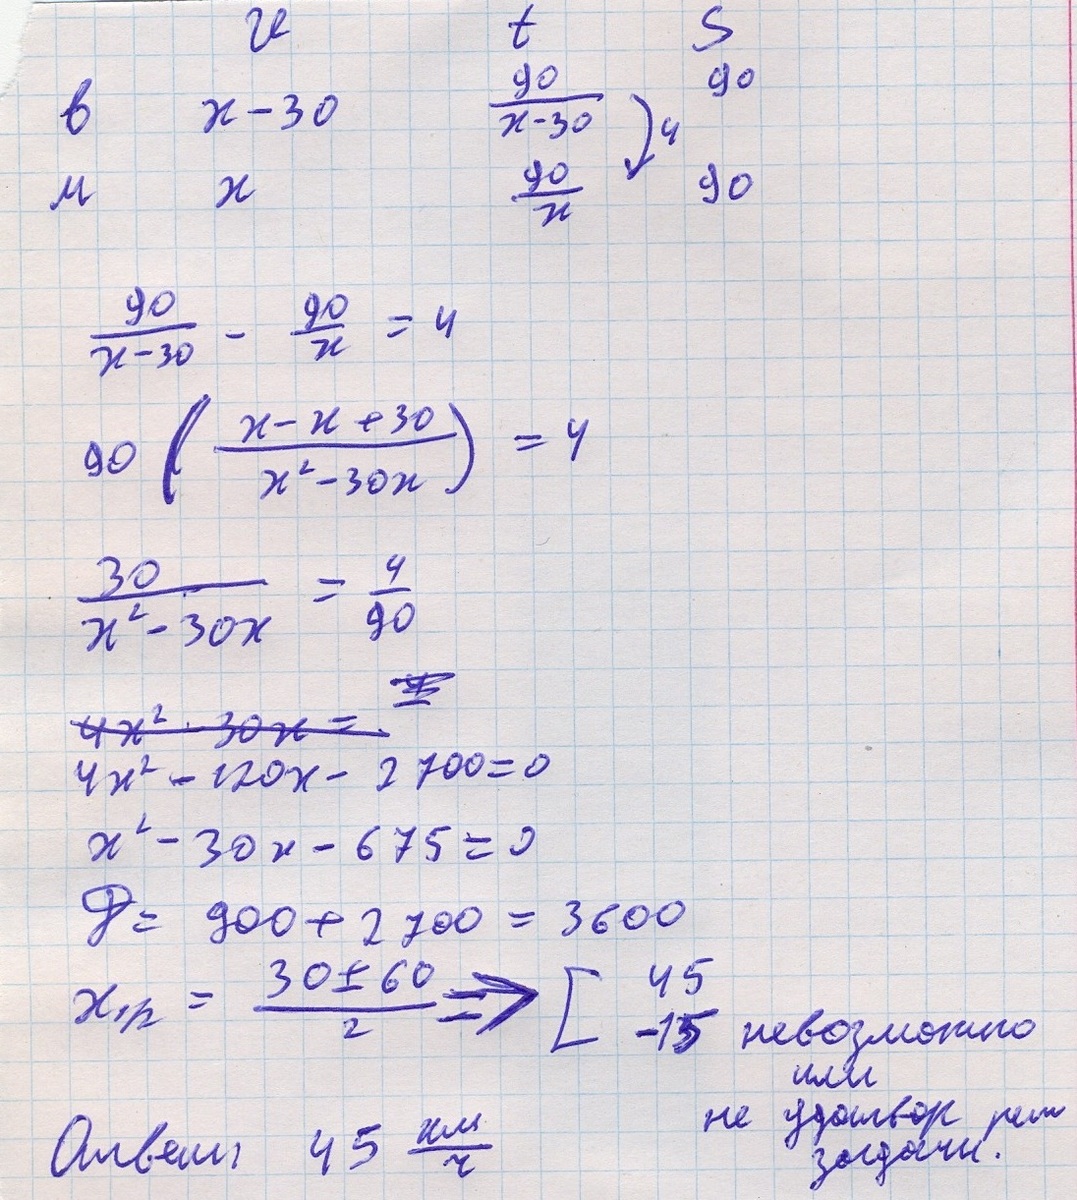 v t S
в x-30 90/(x-30) 90
4
м x 90/x 90
90/(x-30) - 90/x = 4
90 ( (x-x+30)/(x²-30x) ) = 4
30/(x²-30x) = 4/90
4x² - 30x =
4x² - 120x - 2700=0
x² - 30x - 675=0
D= 900+2700 = 3600
x₁,₂ = (30±60)/2 => [ 45
-15 невозможно
или
не удолвор реш
задачи.
Ответ: 45 км/ч